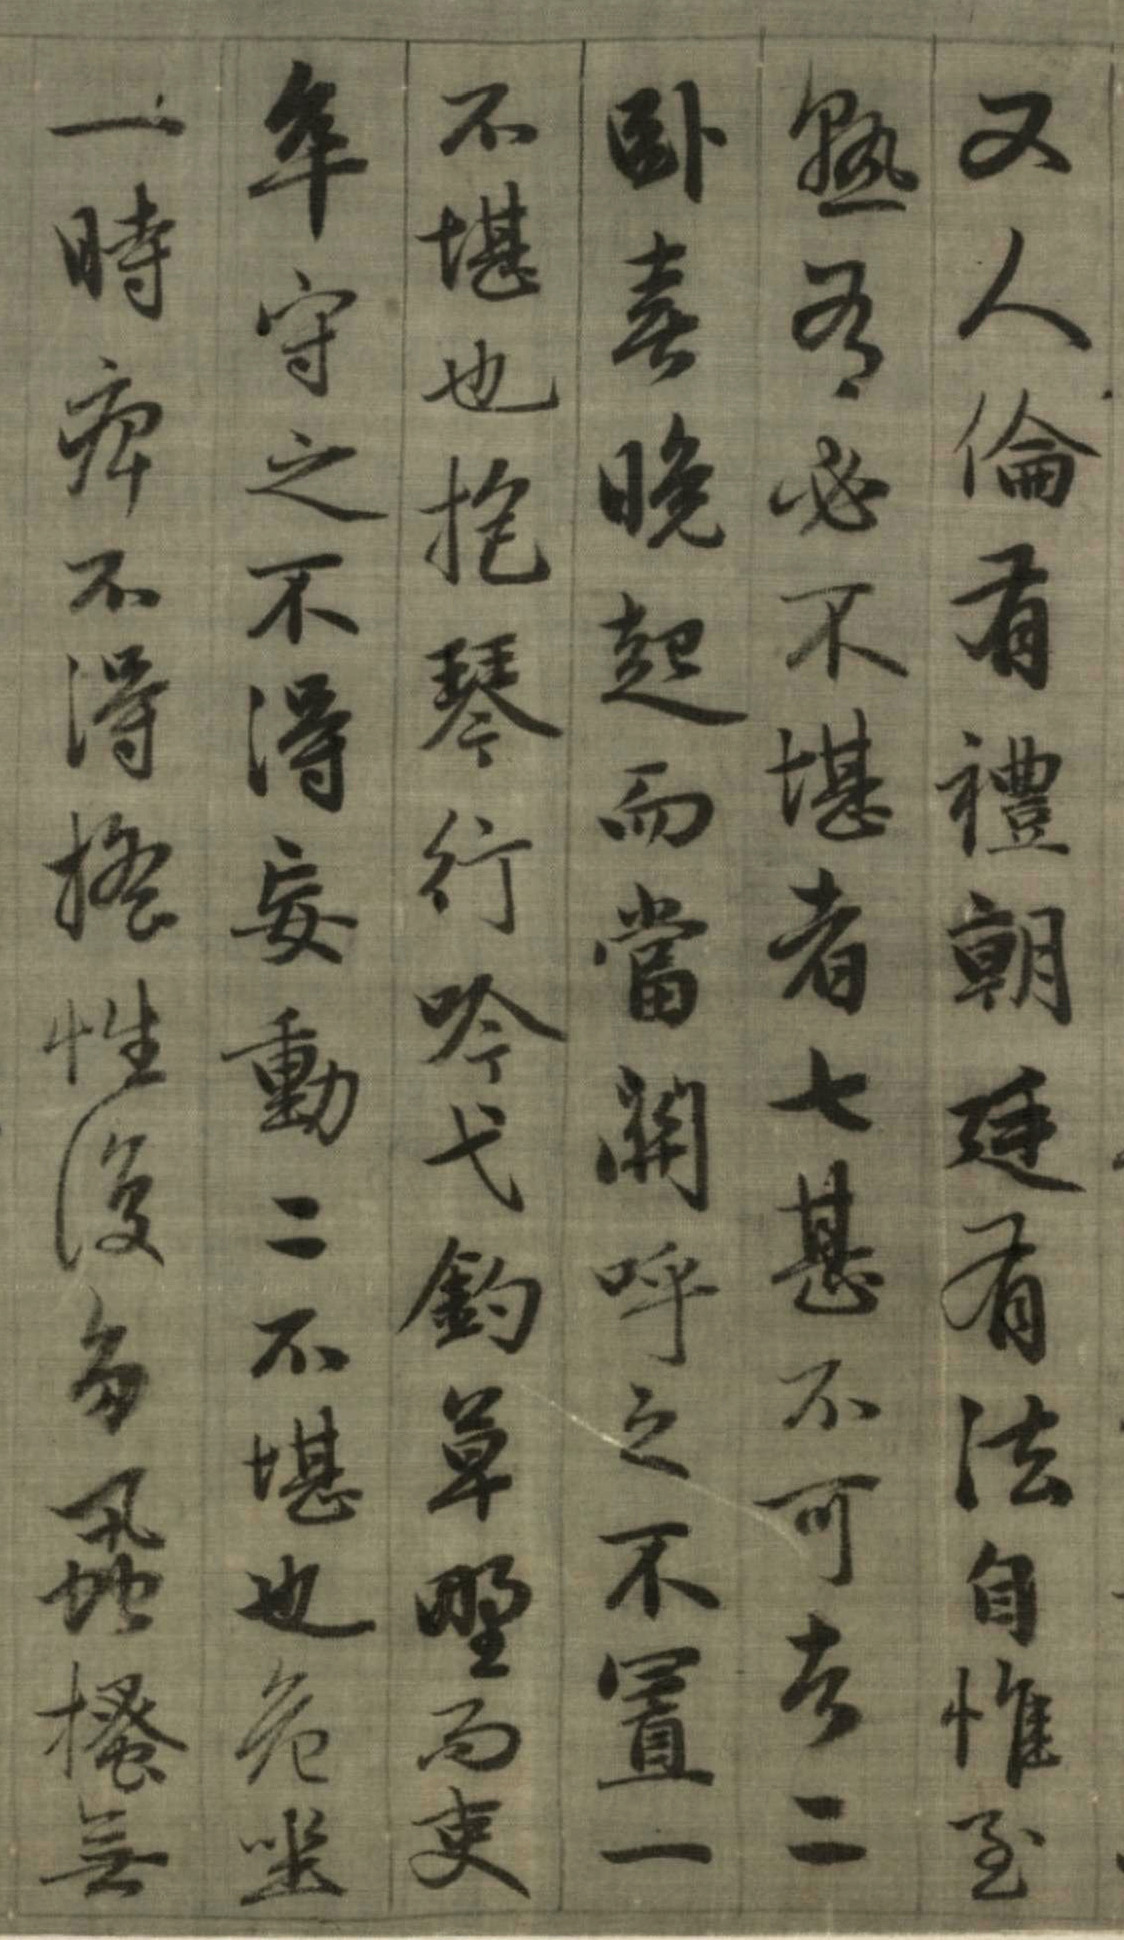 又人倫有禮朝廷有法自惟至
熟有必不堪者七甚不可者二
卧喜晚起而當關呼之不置一
不堪也抱琴行吟弋釣草野而吏
卒守之不得妄動二不堪也危坐
一時痺不得搖性復多虱把搔無